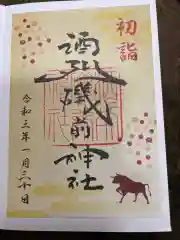 初詣
酒列磯前神社
令和三年一月三十日